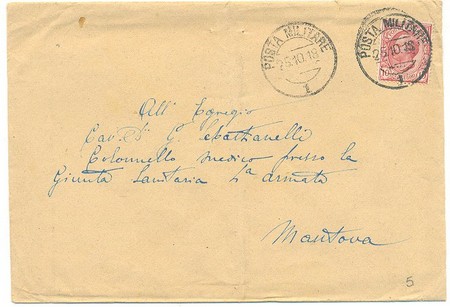 POSTA MILITARE
26.10.18
1
POSTA MILITARE
26.10.18
1
10
All' Egregio
Cav. Dr G.
Colonnello medico presso la
Giunta Sanitaria 4a armata
Mantova
5